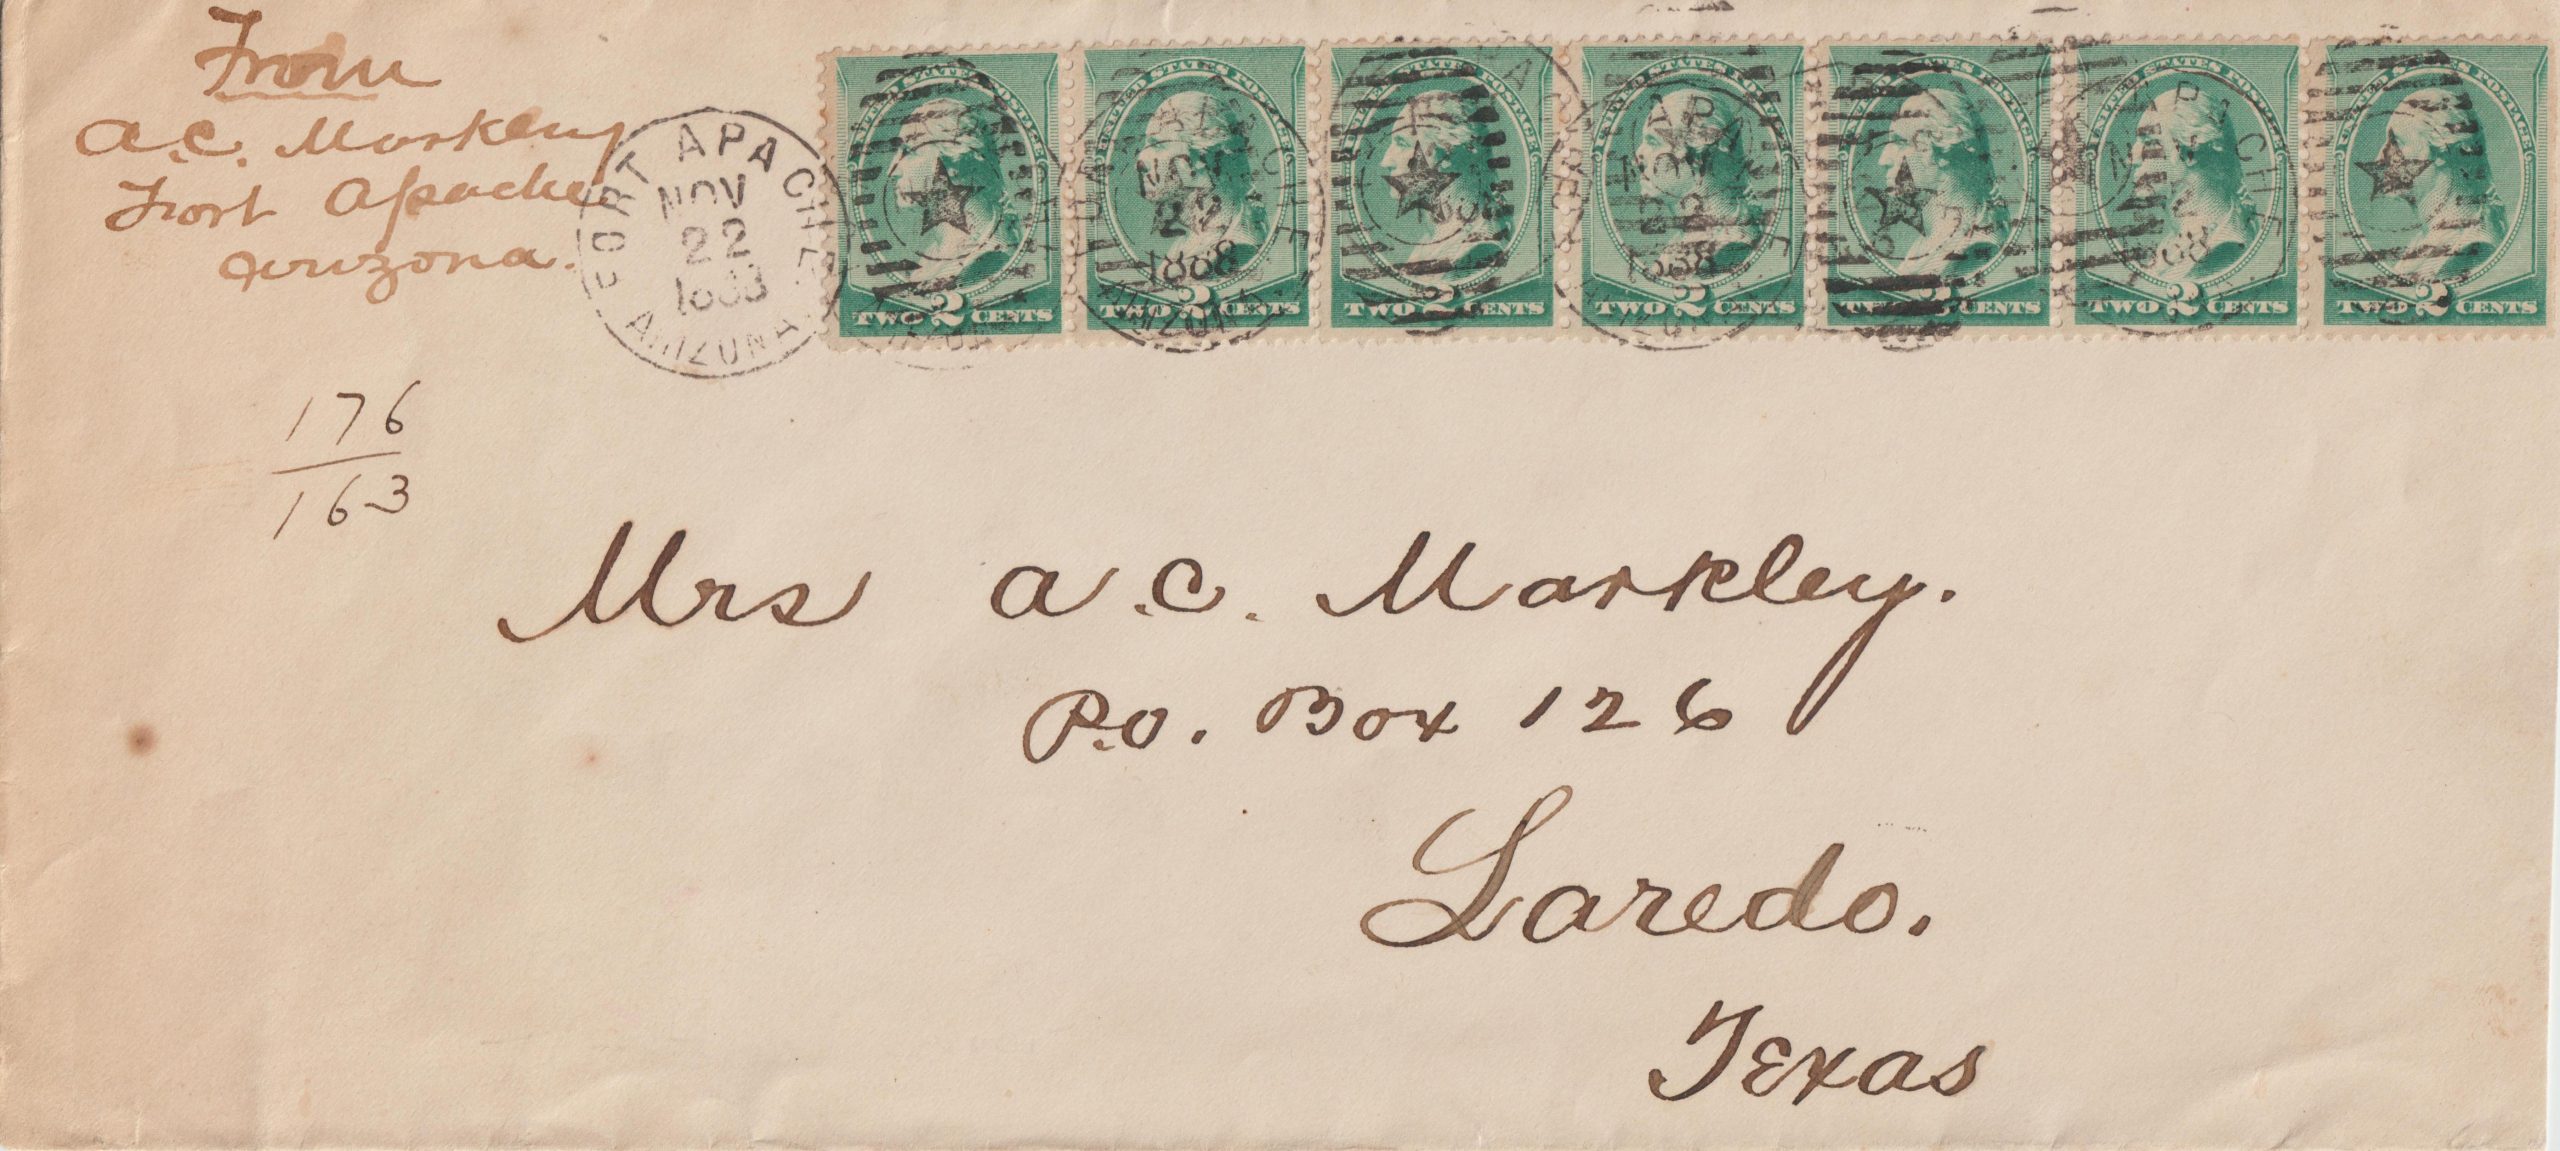 From
A.C. Markley
Fort Apache
Arizona.
FORT APACHE
NOV
22
1888
ARIZONA
UNITED STATES POSTAGE
TWO 2 CENTS
UNITED STATES POSTAGE
NOV
22
1888
ARIZONA
TWO 2 CENTS
UNITED STATES POSTAGE
TWO 2 CENTS
UNITED STATES POSTAGE
NOV
22
1888
TWO 2 CENTS
UNITED STATES POSTAGE
2 CENTS
UNITED STATES POSTAGE
APACHE
1888
TWO 2 CENTS
UNITED STATES POSTAGE
TWO 2 CENTS
176
163
Mrs A.C. Markley.
P.O. Box 126
Laredo.
Texas